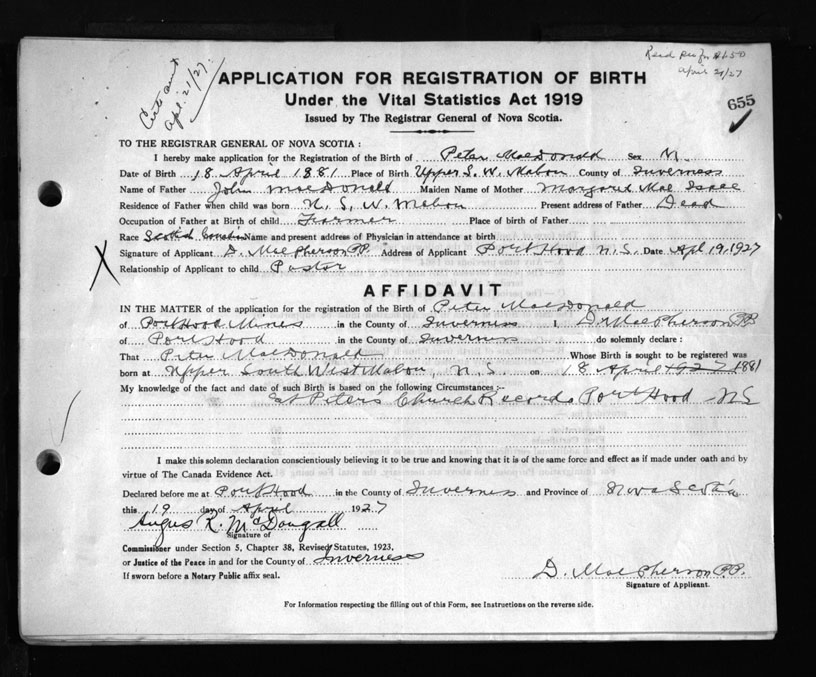 Certs sent
Apl. 21/27.
Read $1.50
April 21/27
655
APPLICATION FOR REGISTRATION OF BIRTH
Under the Vital Statistics Act 1919
Issued by The Registrar General of Nova Scotia.
TO THE REGISTRAR GENERAL OF NOVA SCOTIA :
I hereby make application for the Registration of the Birth of Peter MacDonald Sex M.
Date of Birth 18 April 1881 Place of Birth Upper S. W. Mabou County of Inverness
Name of Father John MacDonald Maiden Name of Mother Margaret Mac Isaac
Residence of Father when child was born S. W. Mabou Present address of Father Dead
Occupation of Father at Birth of child Farmer Place of birth of Father
Race Scotch Canadian Name and present address of Physician in attendance at birth
Signature of Applicant D. MacPherson P.P. Address of Applicant Port Hood N.S. Date Apl 19, 1927
X Relationship of Applicant to child Pastor
AFFIDAVIT
IN THE MATTER of the application for the registration of the Birth of Peter MacDonald
of Port Hood Mines in the County of Inverness I, D. MacPherson P.P.
of Port Hood in the County of Inverness do solemnly declare :
That Peter MacDonald Whose Birth is sought to be registered was
born at Upper South West Mabou, N. S. on 18 April 1927 1881
My knowledge of the fact and date of such Birth is based on the following Circumstances :-
St Peter's Church Records Port Hood N.S
I make this solemn declaration conscientiously believing it to be true and knowing that it is of the same force and effect as if made under oath and by
virtue of The Canada Evidence Act.
Declared before me at Port Hood in the County of Inverness and Province of Nova Scotia
this 19 day of April 1927
Angus R. McDougall
Signature of
Commissioner under Section 5, Chapter 38, Revised Statutes, 1923.
or Justice of the Peace in and for the County of Inverness
If sworn before a Notary Public affix seal.
D. MacPherson P.P.
Signature of Applicant.
For Information respecting the filling out of this Form, see Instructions on the reverse side.